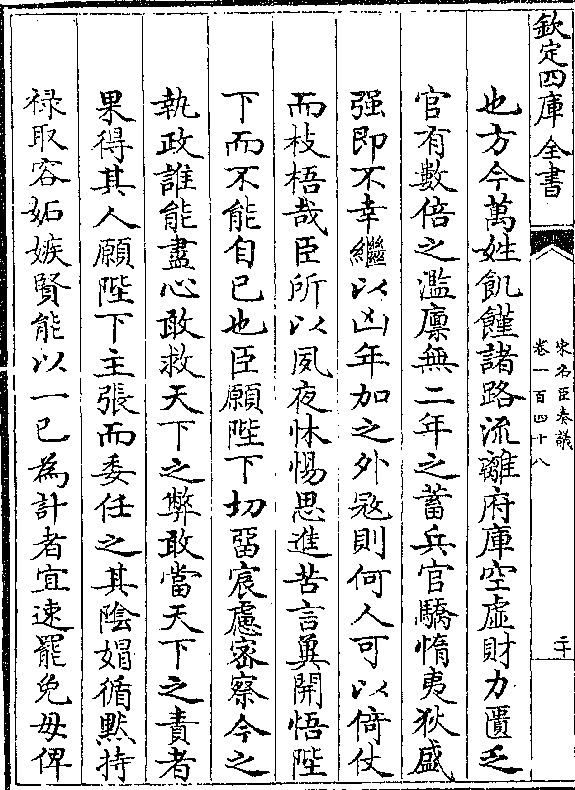 欽定四庫全書
宋名臣奏議
卷一百四十八
二十
也方今萬姓飢饉諸路流離府庫空虛財力匱乏
官有數倍之濫廩無二年之蓄兵官驕惰夷狄盛
强即不幸繼以凶年加之外冦則何人可以倚仗
而枝梧哉臣所以夙夜怵惕思進苦言兾開悟陛
下而不能自已也臣願陛下切留宸慮密察今之
執政誰能盡心敢救天下之弊敢當天下之責者
果得其人願陛下主張而委任之其陰媢循黙持
禄取容妬嫉賢能以一已為計者宜速罷免毋俾